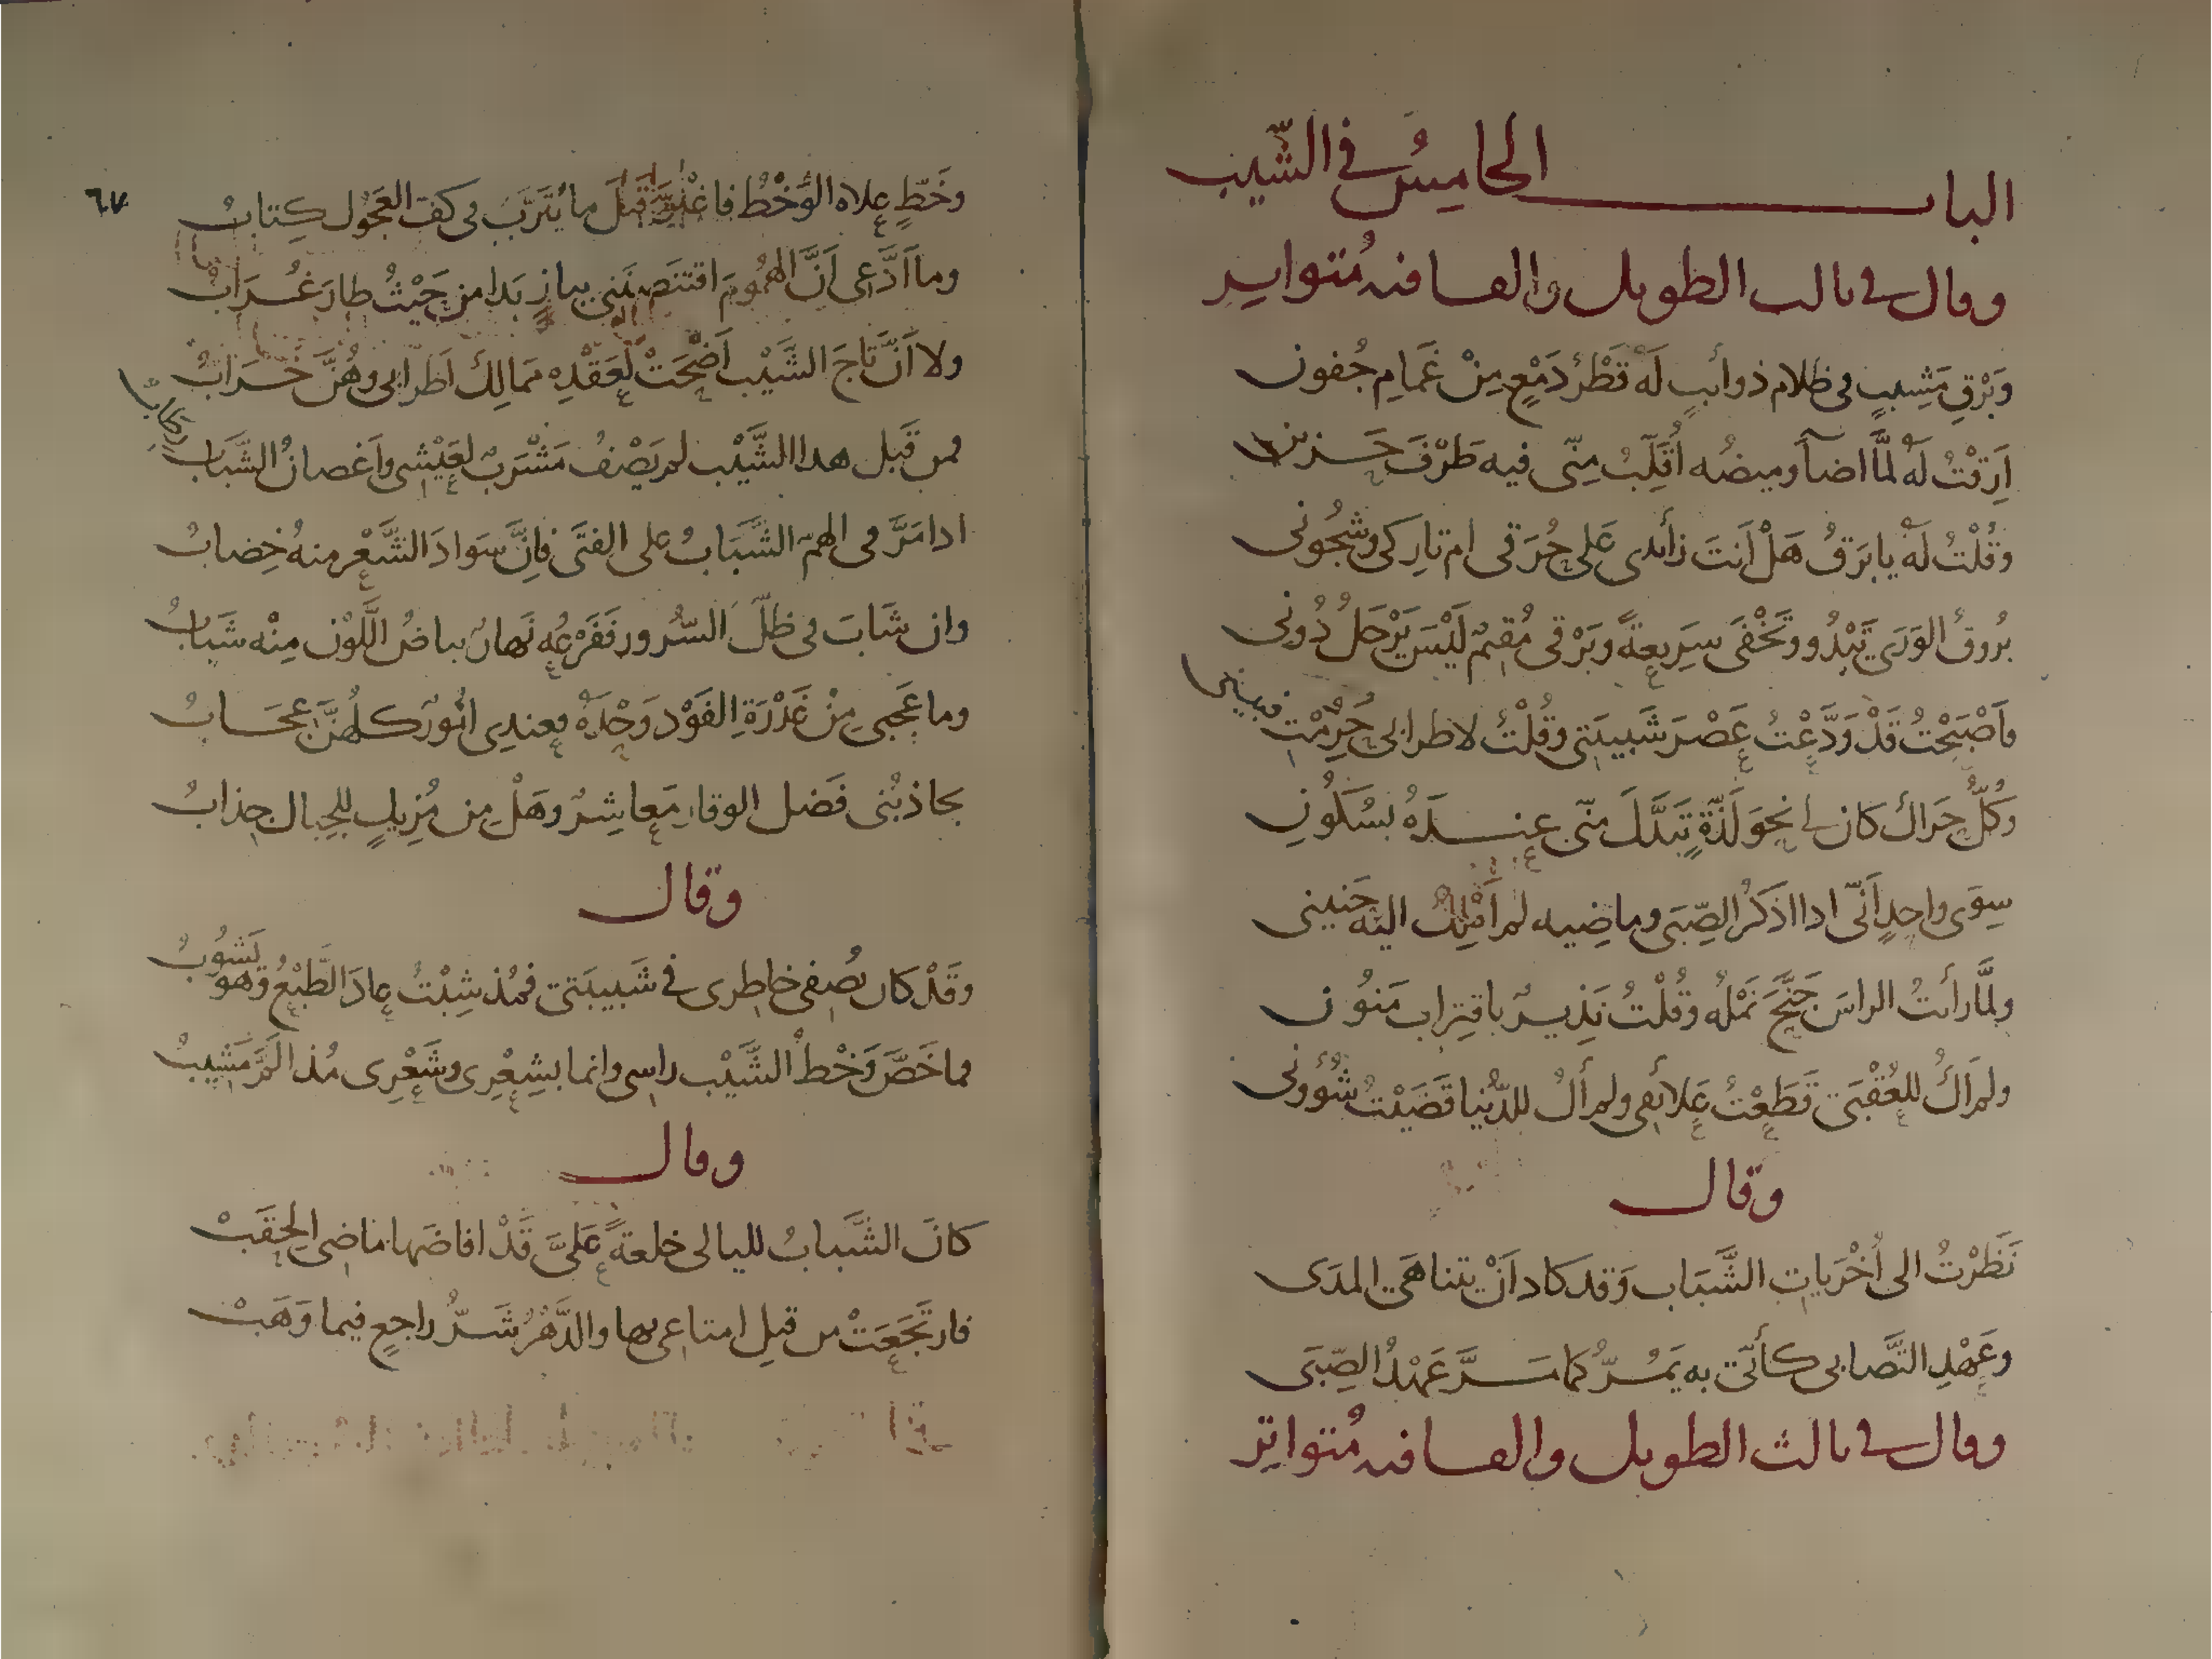 الباب الخامس في الشيب
وقال في ثالث الطويل والقافية متواتر
وَبَرْقِ مَشِيبٍ في ظلام ذوائبٍ لَهُ قَطْرُ دَمْعٍ مِنْ غَمَامِ جُفون
أَرِقْتُ لَهُ لمَّا اضآ وميضُه أُقَلِّبُ مِنّى فيه طَرْفَ حَزين
وقُلْتُ لَهُ يا بَرقُ هَلْ أَنتَ زائدى عَلى حُرَقى ام تاركى وشجُونى
بُروقُ الوَرَى تَبْدُو وتَخْفَى سَرِيعةً وبَرْقى مُقيمٌ لَيْسَ يَرْحَلُ دُونى
فأَصْبَحْتُ قَدْ وَدَّعْتُ عَصْرَ شَبيبَتى وقُلْتُ لاطرابى حُرِمْتِ فبينى
وَكُلُّ حَراك كان لى نحوَ لَذّةٍ تَبَدَّلَ منّى عندَهُ بسُكُونِ
سِوَى واحدٍ أَنّى اذا اذكَرُ الصِّبَى وماضِيه لم أَمْلِكْ اليْه حَنينى
ولمَّا رأيتُ الراسَ جَنَّحَ نَمْلُه وقُلْتُ نَذِيرٌ باقتِراب مَنُون
ولم أَكُ للعُقْبَى قَطَعْتُ عَلائقى ولم أَكُ للدُّنيا قَضَيْتُ شُؤونى
وقال
نَظَرْتُ الى أُخْرَياتِ الشَّبَاب وَقد كاد أَنْ يتناهَى المدَى
وعَهْدِ التَّصابى كأنّى به يَمُرُّ كما مَرَّ عَهْدُ الصِّبَى
وقال في ثالث الطويل والقافية مُتواتِر
٦٧
وخَطٍّ علاه الوَخْطُ فاغْبَرَّ قَبْلَ ما يُتَرَّبَ فى كف العَجُول كِتابُ
وما أَدَّعى أَنَّ الهمُومَ اقتنَصْنَنى ببازٍ بَدا من حَيْثُ طارَ غُرَابُ
ولا أَنَّ تاجَ الشَّيْب أَضْحَتْ لعَقْدِه ممَالِكُ أَطرابى وهُنَّ خَرَابُ
فمن قَبل هذا الشَّيْب لم يَصْفُ مَشْرَبٌ لعَيْشى وأَغصانُ الشَّبَاب رِطابُ
اذا مَرَّ فى الهمّ الشَّبَابُ على الفتَى فإنَّ سَوادَ الشَّعْرِ منهُ خِضابُ
وان شَابَ فى ظلّ السُّرور ففَرْعُه نَهارٌ بياضُ اللَّوْن مِنْه شَبابُ
وما عَجَبى مِنْ غَدْرَةِ الفَوْد وَحْدَهُ فعندِى امُورٌ كلهُنَّ عجَابُ
يجاذبُنى فَضل الوقارِ مَعاشِرٌ وهَلْ مِن مُزيلٍ للجِبال جذابُ
وقال
وقَدْ كان يصْفى خاطرى في شَبيبَتى فمُذ شِبْتُ عادَ الطَّبْعُ وَهو يَشُوبُ
فما خَصَّ وَخْطُ الشَّيْب راسى وانما بشِعْرِى وشَعْرِى مُذ أَلمَّ مَشيبُ
وقال
كانَ الشَّبابُ لليالى خلعةً عَلىَّ قَدْ افاضَها ماضى الحِقَبْ
فارتَجَعَتْ من قبلِ امتاعى بها والدَّهْرُ شَرُّ راجعٍ فيما وَهَبْ